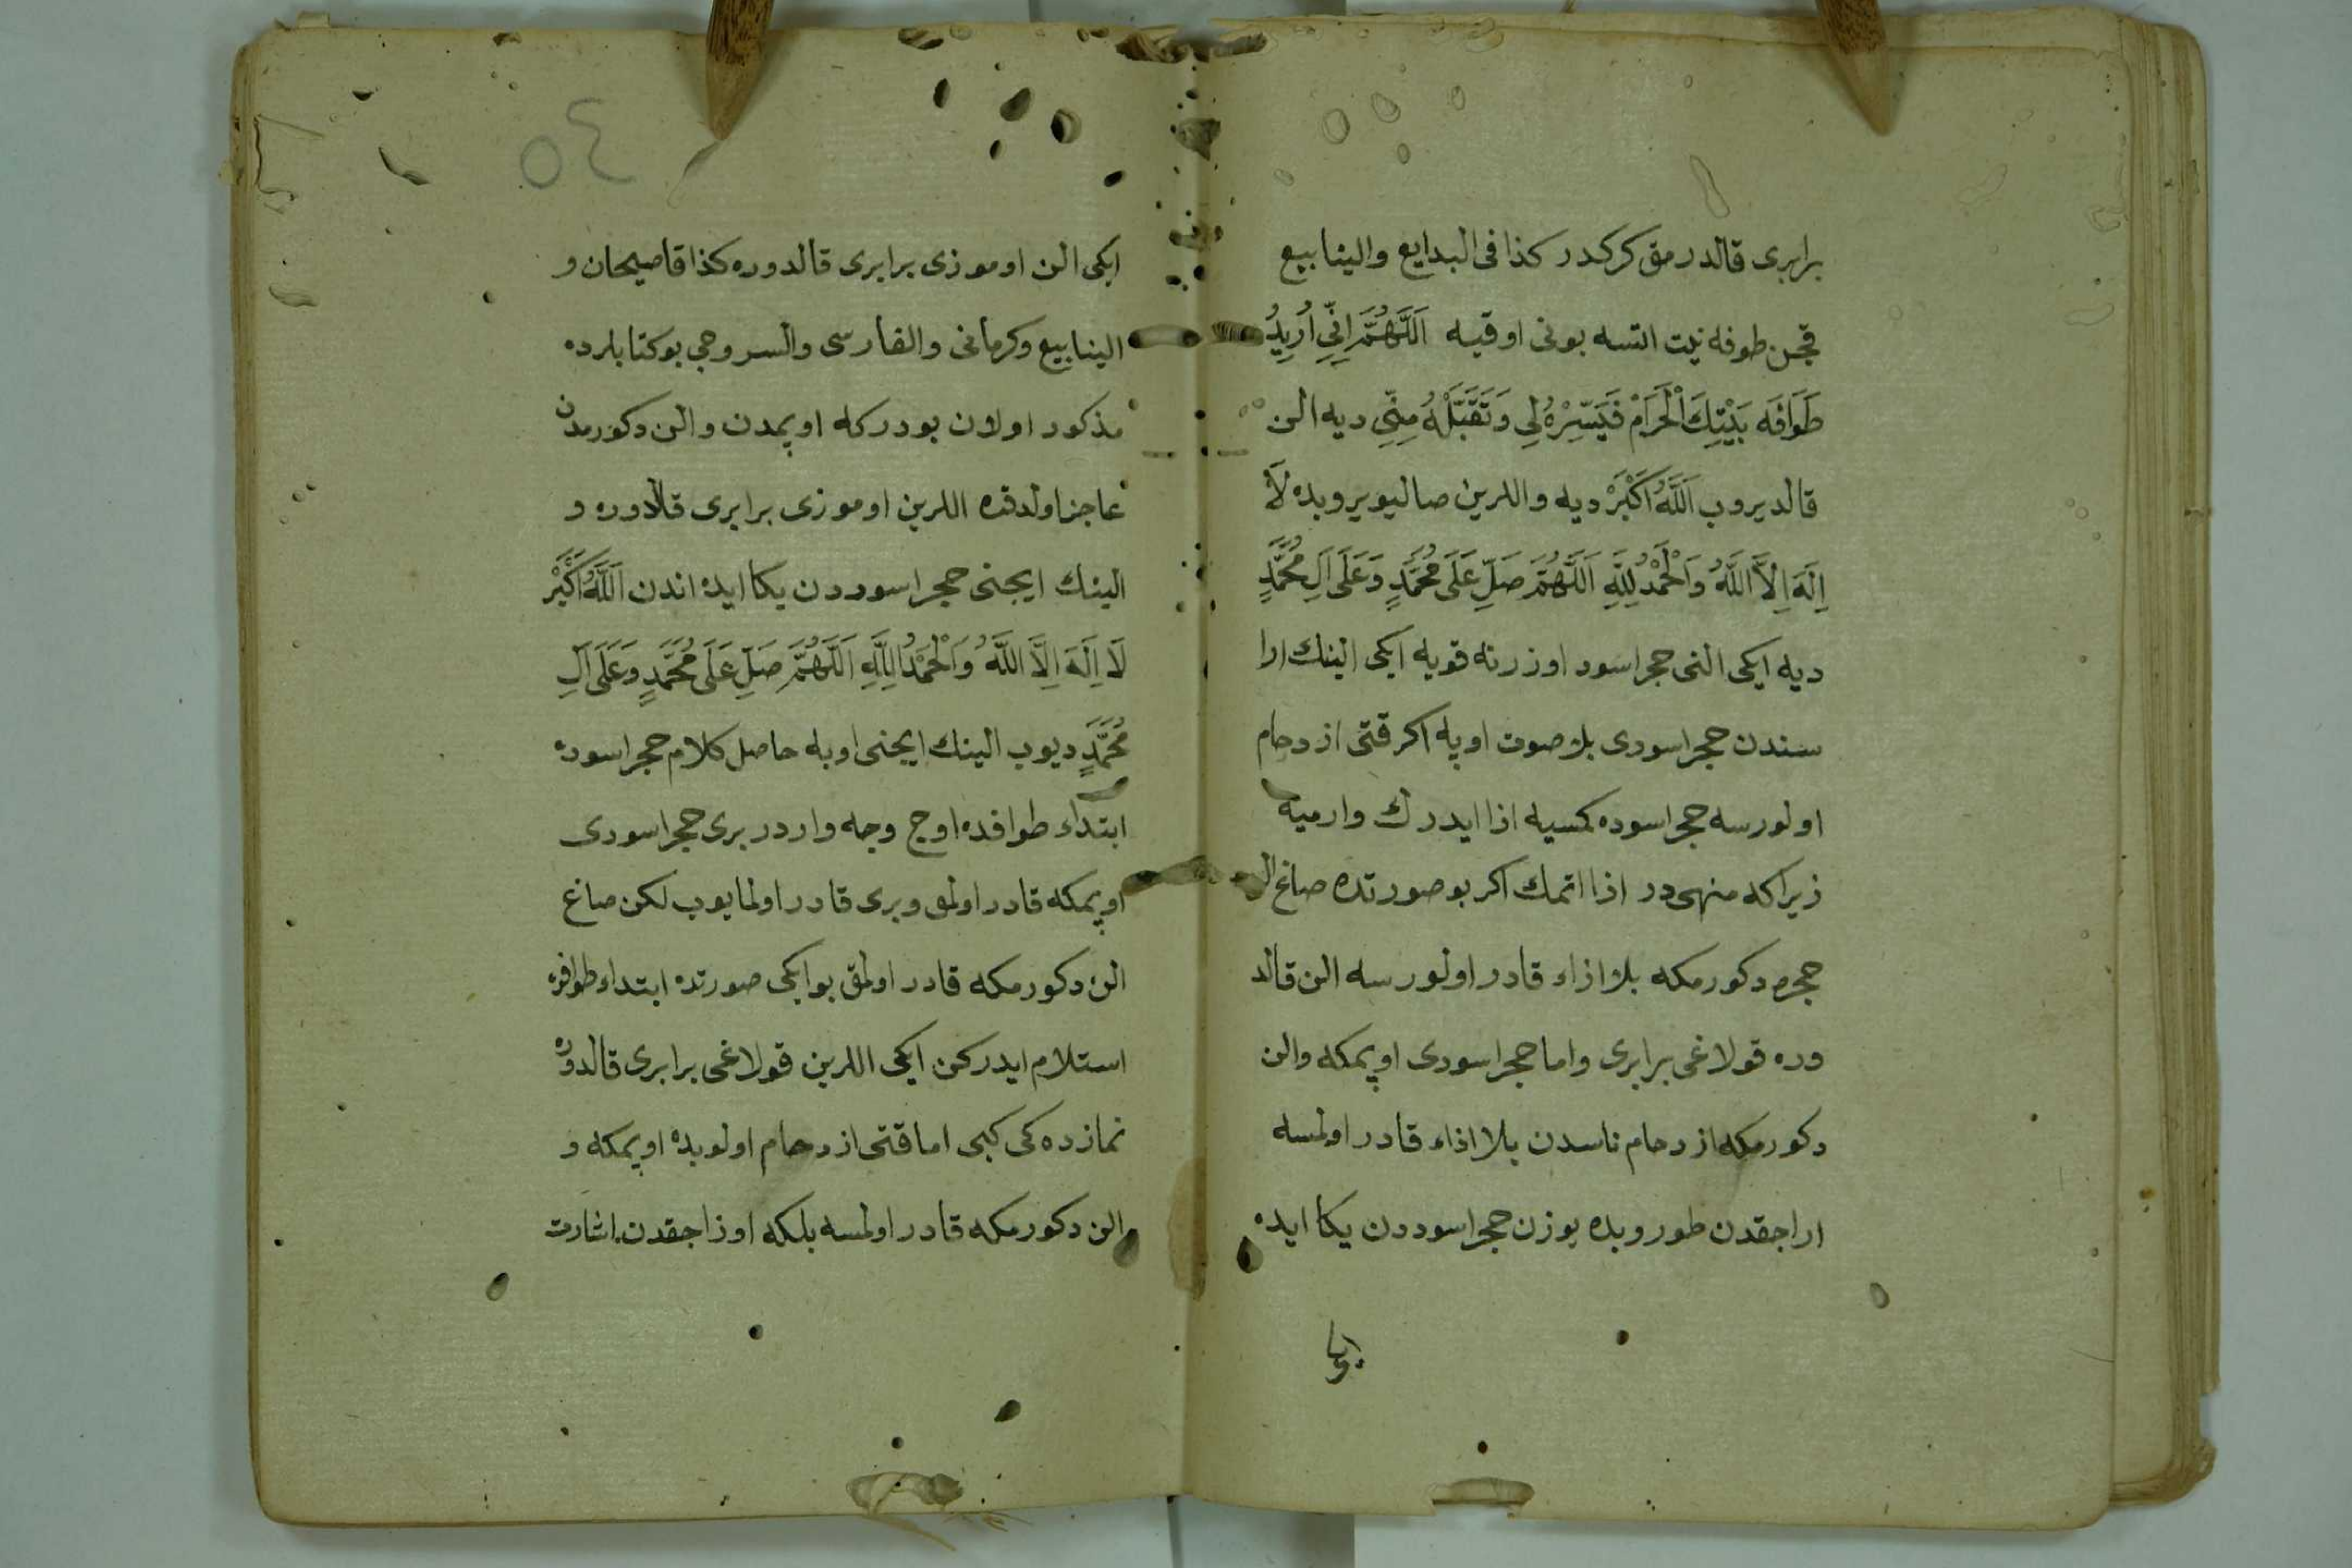 برابری قالدرمق كركدر كذا فی البدایع والینابیع
قچن طوفه نیت اتسه بونی اوقیه اَللَّهُمَّ اِنِّی اُرِیدُ
طَوَافَه بَیْتِكَ الْحَرَامْ فَیَسِّرْهُ لِی وَتَقَبَّلْهُ مِنِّی دیه الن
قالدیروب اَللَّهُ اَكْبَرْ دیه واللرین صالیویروبده لَا
اِلَهَ اِلَّا اللَّهُ وَالْحَمْدُ لِلَّهِ اَللَّهُمَّ صَلِّ عَلَی مُحَمَّدٍ وَعَلَی اَلِ مُحَمَّدٍ
دیه ایكی النی حجر اسود اوزرنه قویه ایكی الینك ارا
سندن حجر اسودی بلا صوت اوپه اكر قتی ازدحام
اولورسه حجر اسوده كمسیه اذا ایدرك وارمیه
زیرا كه منهی در اذا اتمك اكر بو صورتده صاغ ال
حجره دكورمكه بلا اذاء قادر اولورسه الن قالد
وره قولاغی برابری واما حجر اسودی اوپمكه والن
دكورمكه ازدحام ناسدن بلا اذاء قادر اولمسه
اراجقدن طوروبده یوزن حجر اسوددن یكا ایده
ایكی الن اوموزی برابری قالدوره كذا قاضیخان و
الینابیع وكرمانی والفارسی والسروجی بوكتابلرده
مذكور اولان بودركه اوپمدن والن دكورمدن
عاجز اولدقده اللرین اوموزی برابری قالدوره و
الینك ایچنی حجر اسوددن یكا ایده اندن اَللَّهُ اَكْبَرْ
لَا اِلَهَ اِلَّا اللَّهُ وَالْحَمْدُ لِلَّهِ اَللَّهُمَّ صَلِّ عَلَی مُحَمَّدٍ وَعَلَی اَلِ
مُحَمَّدٍ دیوب الینك ایچنی اوپه حاصل كلام حجر اسوده
ابتداء طوافده اوج وجه واردر بری حجر اسودی
اوپمكه قادر اولمق وبری قادر اولمایوب لكن صاغ
الن دكورمكه قادر اولمق بو ایكی صورتده ابتداء طوافده
استلام ایدركن ایكی اللرین قولاغی برابری قالدوره
نمازده كی كبی اما قتی ازدحام اولوبده اوپمكه و
الن دكورمكه قادر اولمسه بلكه اوزاجقدن اشارت